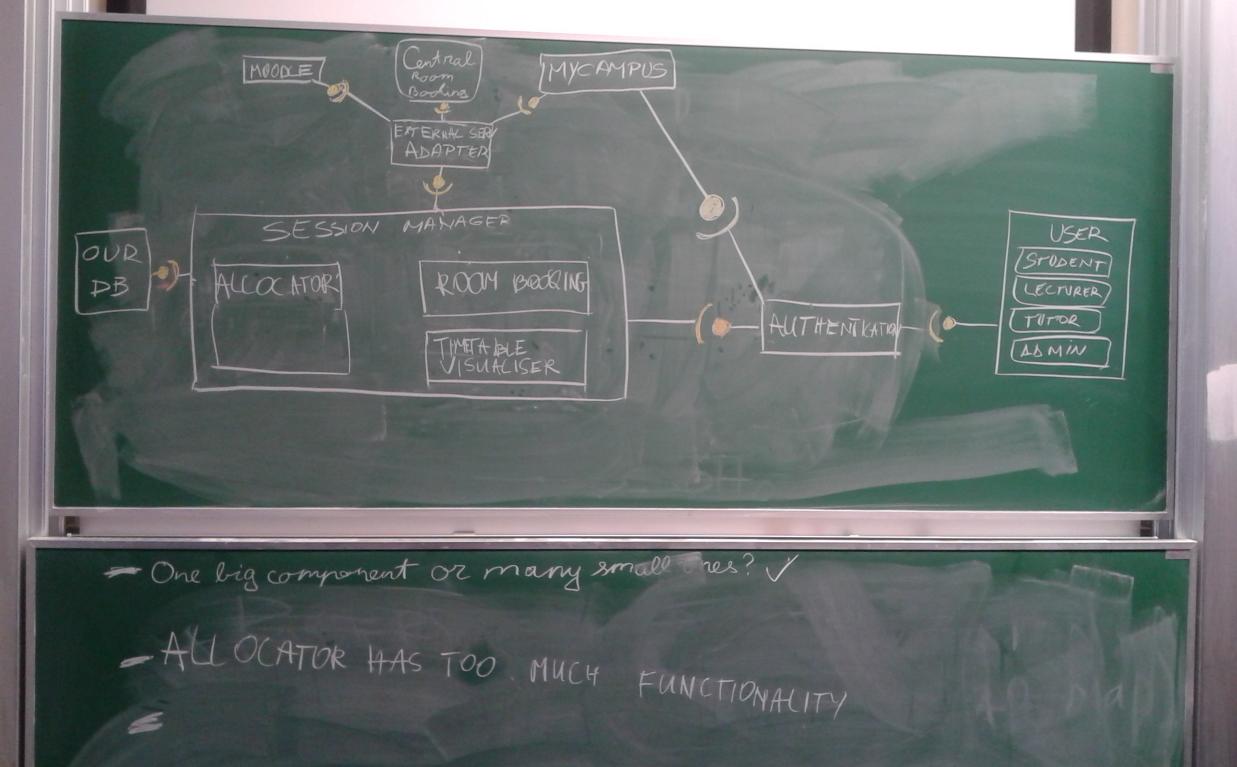 MOODLE
Central
Room
Booking
MYCAMPUS
EXTERNAL SERV
ADAPTER
SESSION MANAGER
OUR
DB
ALLOCATOR
ROOM BOOKING
TIMETABLE
VISUALISER
AUTHENTICATION
USER
STUDENT
LECTURER
TUTOR
ADMIN
- One big component or many small ones? ✓
- ALLOCATOR HAS TOO MUCH FUNCTIONALITY
-